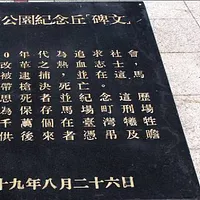 公園紀念丘﹂碑文
0年代為追求社會
改革之熱血志士，
被逮捕，並在這馬
帶槍決死亡。
思死者並紀念這歷
為保存馬場町刑場
千萬個在臺灣犧牲
供後來者憑弔及瞻
十九年八月二十六日